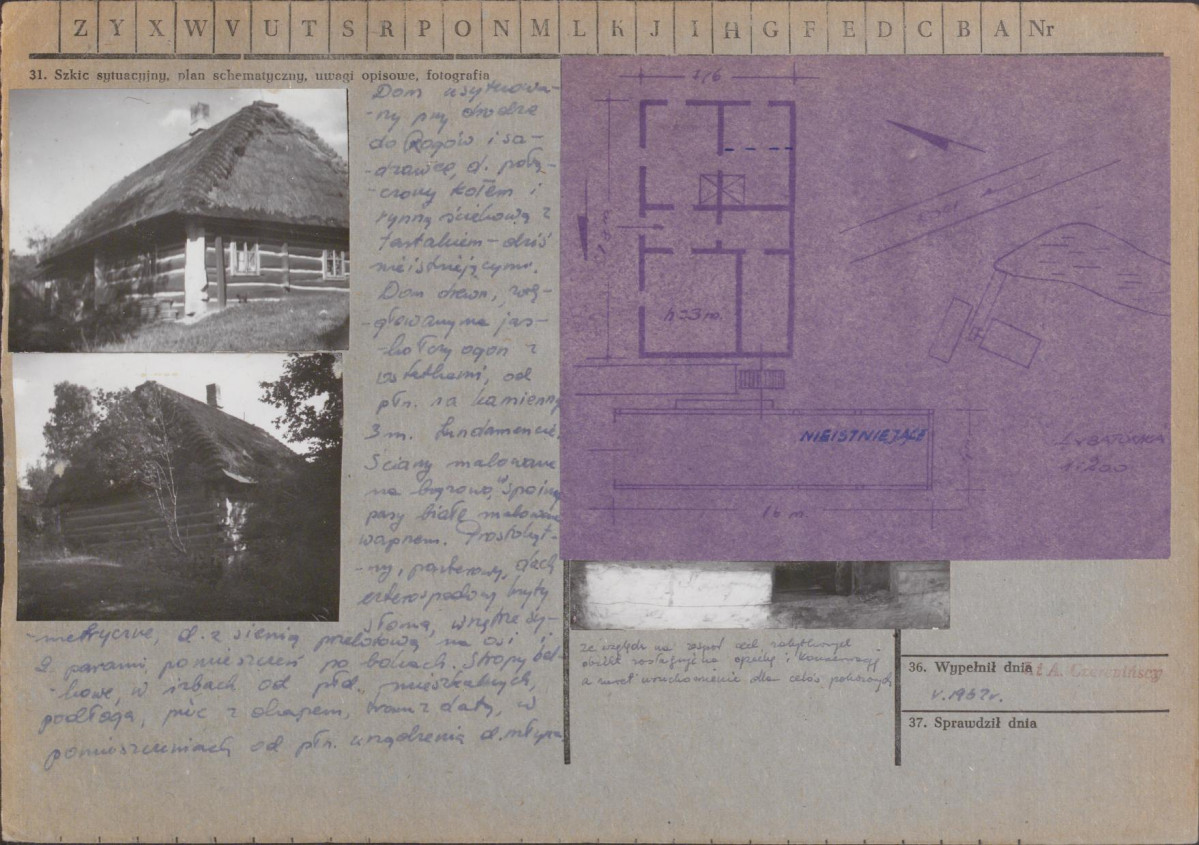 Z Y X W V U T S R P O N M L K J I H G F E D C B A Nr
31. Szkic sytuacyjny, plan schematyczny, uwagi opisowe, fotografia
Dom usytuowa-
-ny przy drodze
do Rogów i sa-
-dzawce, d. połą-
-czony kołem i
rynną ściekową z
tartakiem - dziś
nieistniejącym.
Dom drewn., węg-
-łowany na jas-
-kółczy ogon z
ostatkami, od
płn. na kamienny
3 m. fundamencie,
Ściany malowane
na brązowo, spoiny
pasy białe malowane
wapnem. Prostokąt-
-ny, parterowy, dach
czterospadowy kryty
słomą, wnętrze sy-
-metryczne, d. z sienią przelotową na osi i
2 parami pomieszczeń po bokach. Stropy bel-
-kowe, w izbach od płd. mieszkalnych,
podłoga, piec z okapem, tram z datą, w
pomieszczeniach od płn. urządzenia d. młyna
176
h=3 m.
NIEISTNIEJĄCE
16 m.
1:200
ze względu na zespół ocal. zabytkowych
obiekt zasługuje na opiekę i konserwację
a nawet uruchomienie dla celów pokazowych
36. Wypełnił dnia
V. 1967r.
37. Sprawdził dnia